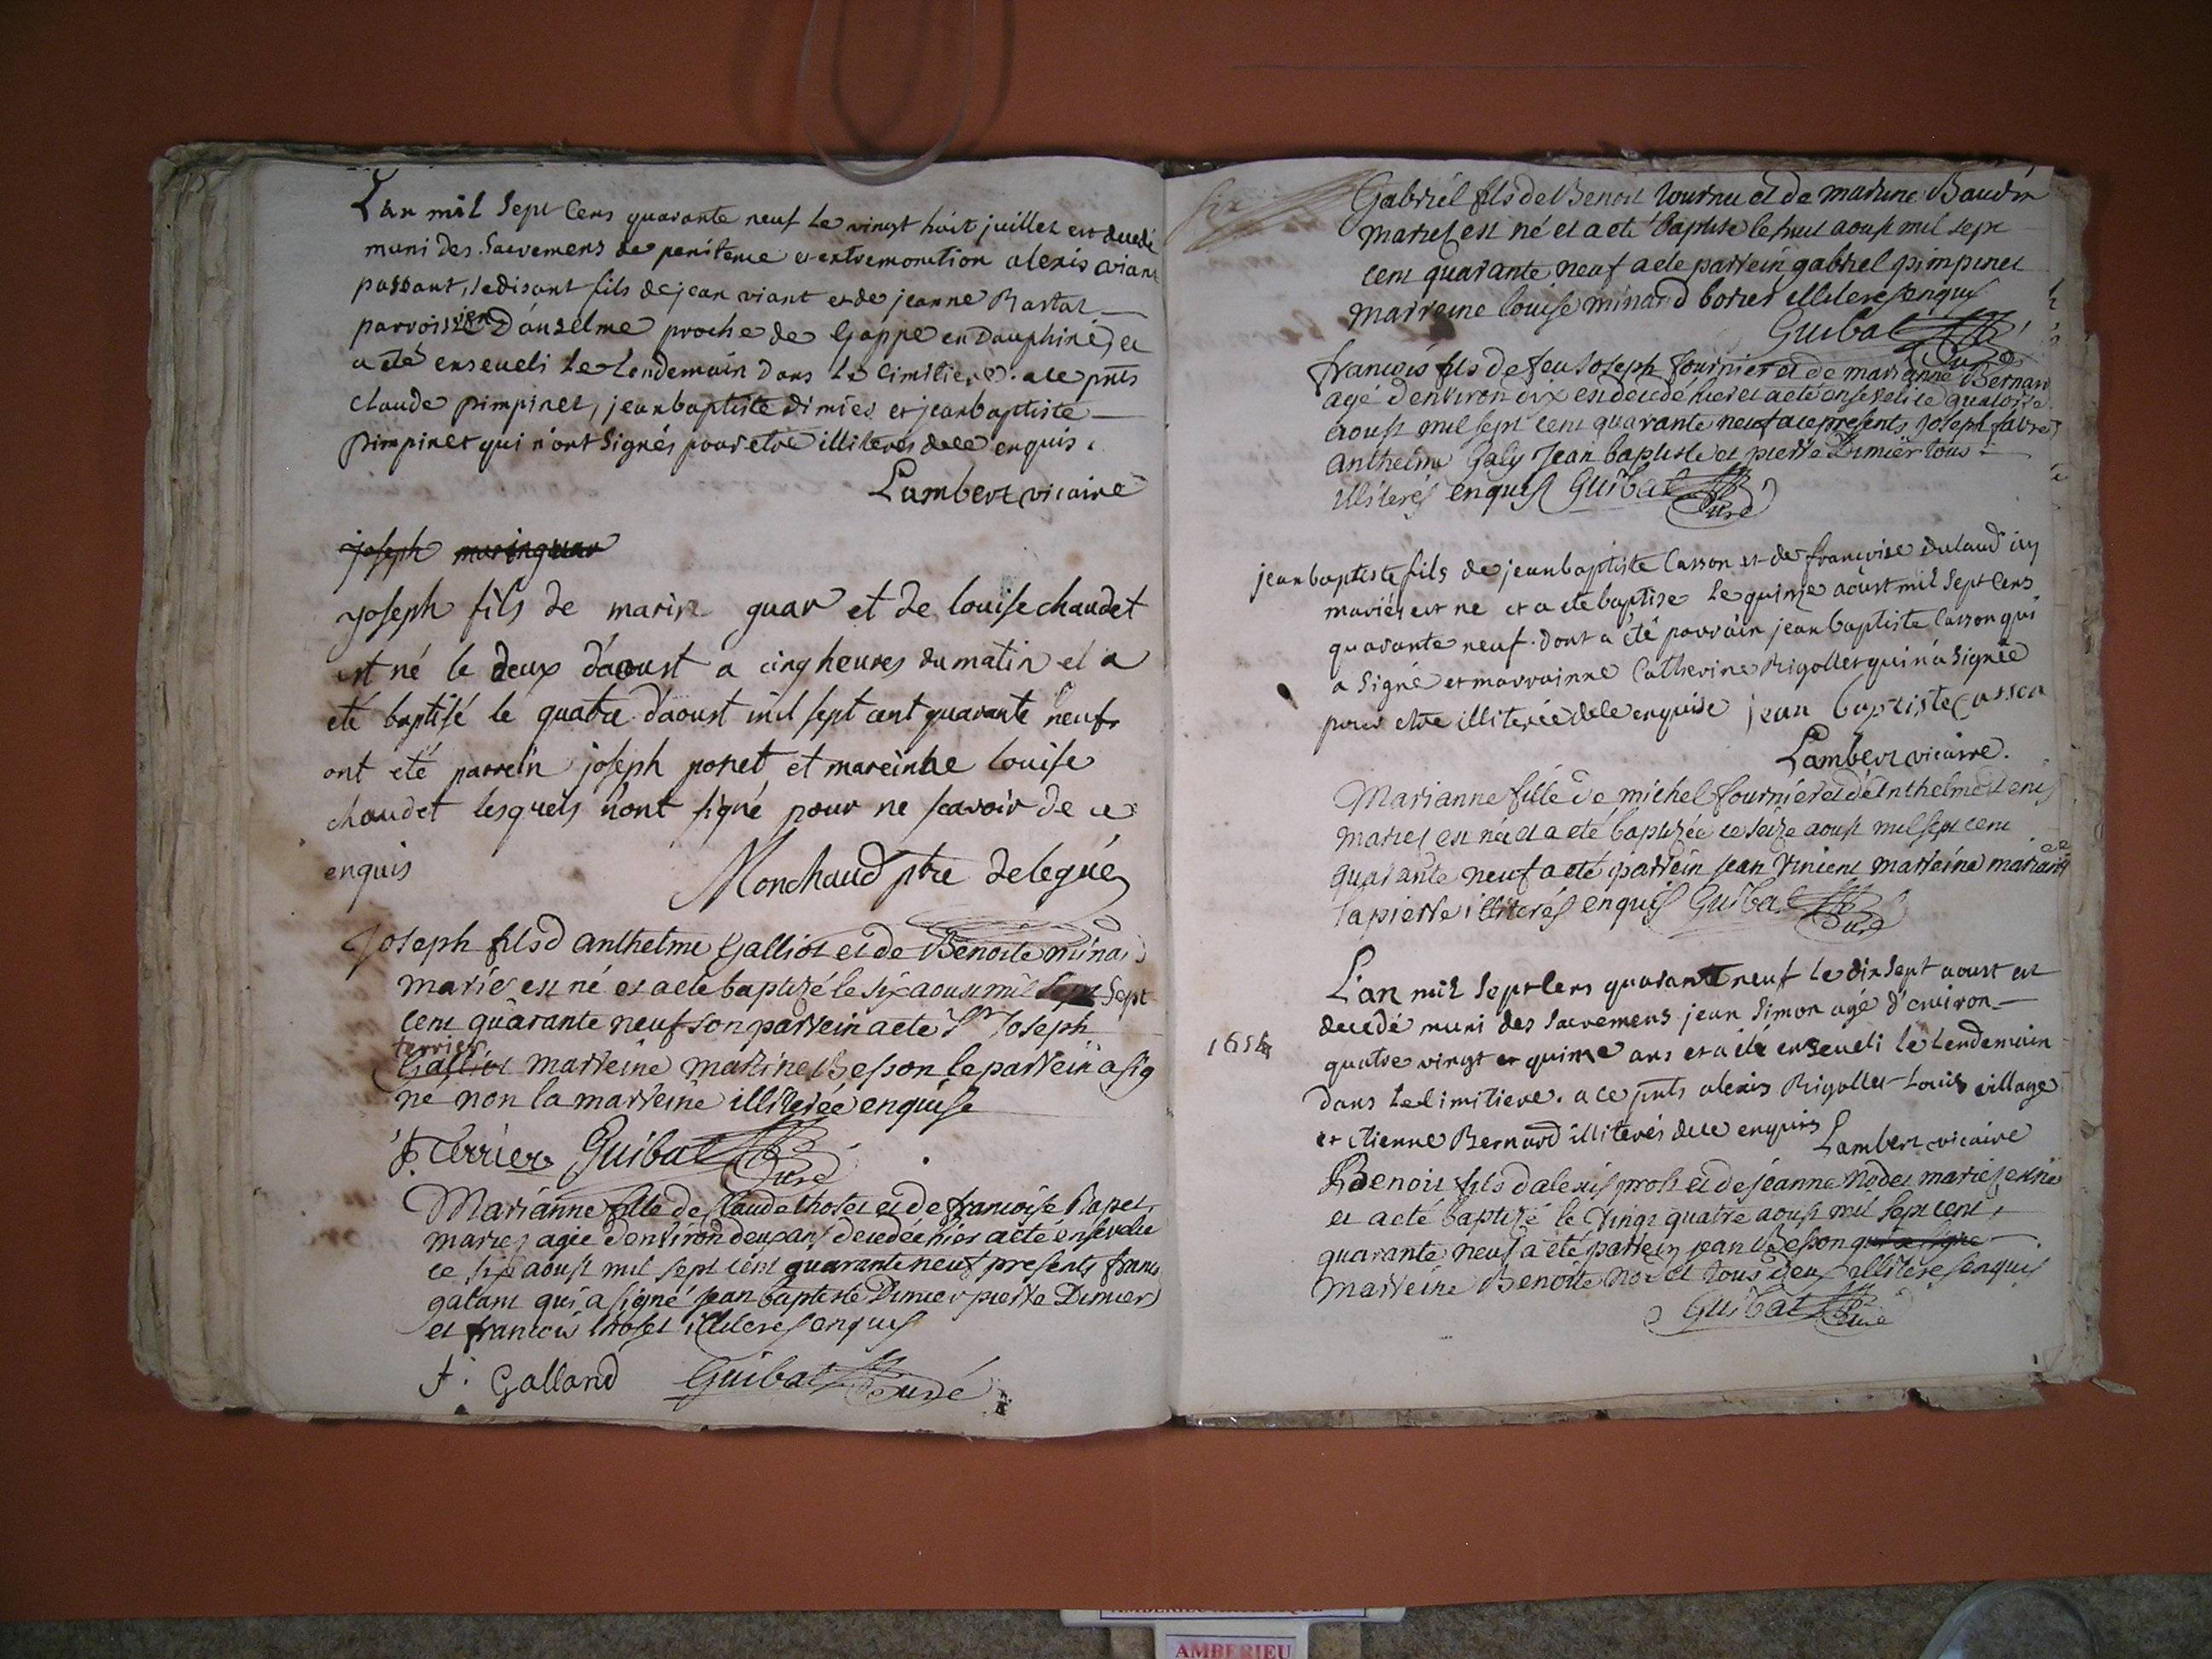 L'an mil sept cens quarante neuf le vingt huit juillet est decedé
muni des sacremens de penitence et extremonction alexis viant
passant, se disant fils de jean viant et de jeanne Bartat
parroissien D'anselme proche de Gappe en Dauphiné, et
a été enseveli le lendemain dans le cimitiere. a ce pnts
claude pimpinet, jean baptiste dimies et jean baptiste
pimpinet qui n'ont signés pour etre illiterés de ce enquis.
Lambert vicaire
joseph marin guar
joseph fils de marin guar et de louise chaudet
est né le deux d'aoust a cinq heures du matin et a
eté baptisé le quatre d'aoust mil sept cent quarante neuf
ont eté parrein joseph ponet et mareinne louise
chaudet lesquels n'ont signé pour ne scavoir de ce
enquis
Monchaud ptre delegué
Joseph fils d anthelme Galliot et de Benoite mina
mariés est né et a eté baptizé le six aoust mil sept sept
cent quarante neuf son parrein a eté Sr Joseph
terrier
Galliot marreine marine Besson le parrein a sig
né non la marreine illiterée enquise
J. Terrier Guibat Curé
Marianne fille de Claude thoset et de francoise Rapet
mariez agée d'environ deux ans decedée hier a eté ensevelie
ce six aoust mil sept cent quarante neuf presents francs
galant qui a signé jean baptiste Dimier pierre Dimier
et francois thoset illiterés enquis
f. Galland Guibat Curé
Gabriel fils de Benoit tournu et de marine Baudin
mariés est né et a eté baptisé le huit aoust mil sept
cent quarante neuf a eté parrein gabriel pimpinet
marreine louise minard borier illiteres enquis
Guibat
Curé
francois fils de feu Joseph fournier et de marianne Bernard
agé d'environ dix en decedé hier et a eté enseveli ce quatorze
aoust mil sept cent quarante neuf a ce presents Joseph fabre
anthelme Galy Jean baptiste et pierre Dimier tous
illiterés enquis Guibat Curé
jean baptiste fils de jean baptiste Casson et de francoise dulaud
mariés est né et a eté baptise le quinze aoust mil sept cens
quarante neuf. dont a été parrain jean baptiste Casson qui
a signé et marrainne Catherine Rigollet qui n'a signée
pour etre illiterée de ce enquise jean baptiste casson
Lambert vicaire.
Marianne fille de michel fournier et d'Anthelme
mariés est née et a eté baptizée ce seize aoust mil sept cent
quarante neuf a eté parrein jean Vincent marreine mariane
lapierre illiterés enquis Guibat Curé
L'an mil sept cens quarante neuf le dix sept aoust est
decedé muni des sacremens jean Simon agé d'environ
1654
quatre vingt et quinze ans et a été enseveli le lendemain
dans le cimitiere. a ce pnts alexis Rigollet Louis village
et etienne Bernard illiterés de ce enquis Lambert vicaire
Benoit fils d'alexis prost et de jeanne Nodet mariés est né
et a eté baptizé le vingt quatre aoust mil sept cent
quarante neuf a eté parrein jean Besson qui a signe
marreine Benoite Nodet tous deux illiteres enquis
Guibat Curé
AMBERIEU